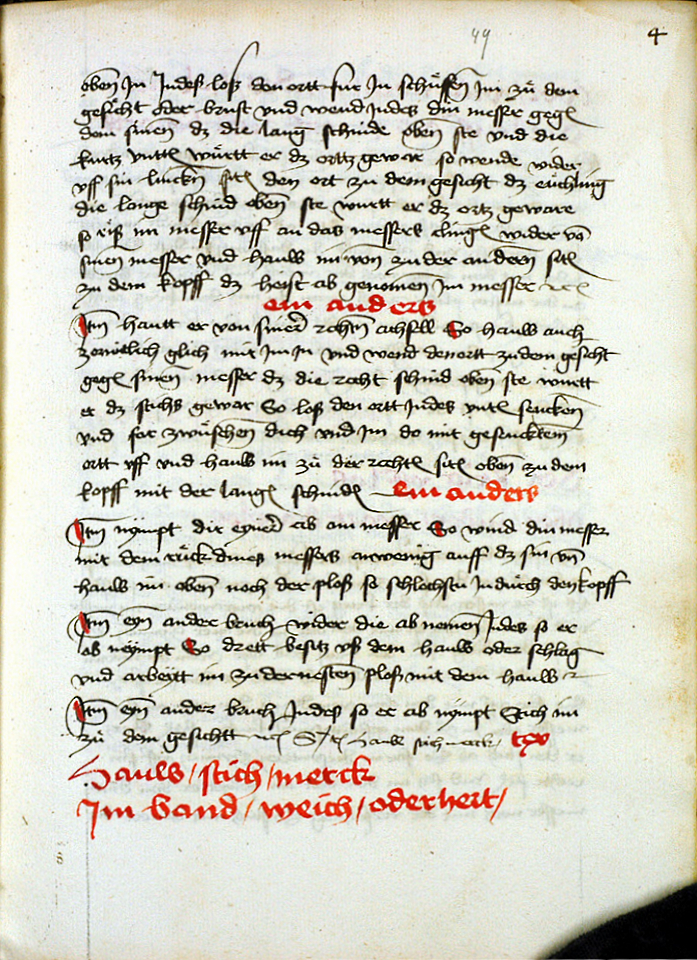 49
4
oben In Indeß loß den ortt für In schüssen Im zů dem
gesicht oder brust vnd wend Indes din messer gegen
dem sinen dz die lang schnide oben ste vnd die
kurtz vnten württ er dz orttz gewar so wende wider
vff sin lincken siten den ort zu dem gesicht dz eüchling
die lange schnid oben ste wurtt er dz ortz geware
so riß im messer vff an das messers clingen wider von
sinem messer vnd hauw im von zu der anderen siten
zu dem kopff dz heist ab genomen Im messer
ein anders
Itm hautt er von siner rechten achsell So hauw auch
glich mit Im In vnd wend den ortt zu dem gesicht
gegen sinen messer dz die recht schnid oben ste württ
er dz stichs gewar So loß den ortt Indes vnten sencken
vnd far zwüschen dich vnd Im do mit gesencktem
ortt vff vnd hauw im zů der rechten siten oben zu dem
kopff mit der langen schniden ein anders
Itm nympt dir eyner ab am messer So wind din messer
mit dem rück dines messers ein wenig auff dz sin vnd
hauw im oben noch der ploß so schlechstu In durch den kopff
Itm eyn ander bruch wider die ab nemen Indes so er
ab neympt So drett besitz vß dem hauw oder schlag
vnd arbeytt im zu der nesten ploß mit dem hauw
Itm eyn ander bruch Indeß so er ab nympt Stich im
zů dem gesichtt hauw stich merck text
Hauw / stich / merck
Im band / weich / oder hert /